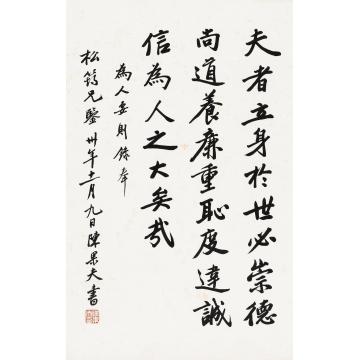 夫者立身於世必崇德
尚道養廉重恥度達誠
信為人之大矣哉
為人要則錄奉
松筠兄鑒 卅年十一月九日陳果夫書